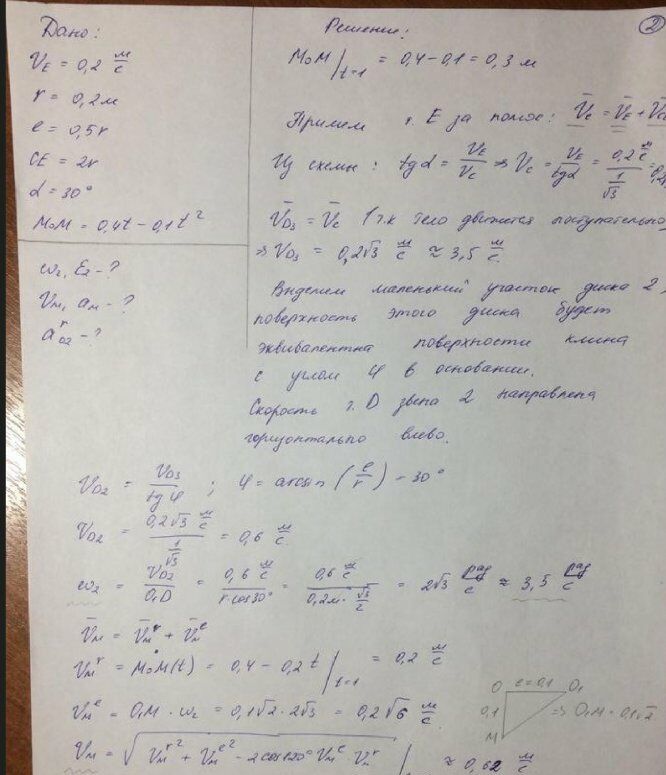 Дано:
V_E = 0,2 м/с
r = 0,2 м
e = 0,5r
CE = 2r
α = 30°
M₀M = 0,4t − 0,1t²
ω₂, ε₂ − ?
V_M, a_M − ?
a^r_D2 − ?
Решение:
2
M₀M |t=1 = 0,4 − 0,1 = 0,3 м
Примем т. E за полюс: V̄_C = V̄_E + V̄_C
Из схемы: tgα = V_E/V_C ⇒ V_C = V_E/tgα = 0,2 м/с / (1/√3) = 0,2
V̄_D3 = V̄_C (т.к тело движется поступательно
⇒ V_D3 = 0,2√3 м/с ≈ 3,5 м/с
Выделим маленький участок диска 2,
поверхность этого диска будет
эквивалентна поверхности клина
с углом φ в основании.
Скорость т. D звена 2 направлена
горизонтально влево.
V_D2 = V_D3/tgφ ; φ = arcsin (e/r) = 30°
V_D2 = 0,2√3 м/с / (1/√3) = 0,6 м/с
ω₂ = V_D2/O₁D = 0,6 м/с / r·cos30° = 0,6 м/с / 0,2м·√3/2 = 2√3 рад/с ≈ 3,5 рад/с
V̄_M = V̄_M^r + V̄_M^e
V_M^r = M₀Ṁ(t) = 0,4 − 0,2t |t=1 = 0,2 м/с
V_M^e = O₁M · ω₂ = 0,1√2 · 2√3 = 0,2√6 м/с
O e=0,1 O₁
0,1 ⇒ O₁M = 0,1√2
M
V_M = √(V_M^r² + V_M^e² − 2cos120° V_M^e · V_M^r) ≈ 0,62 м/с